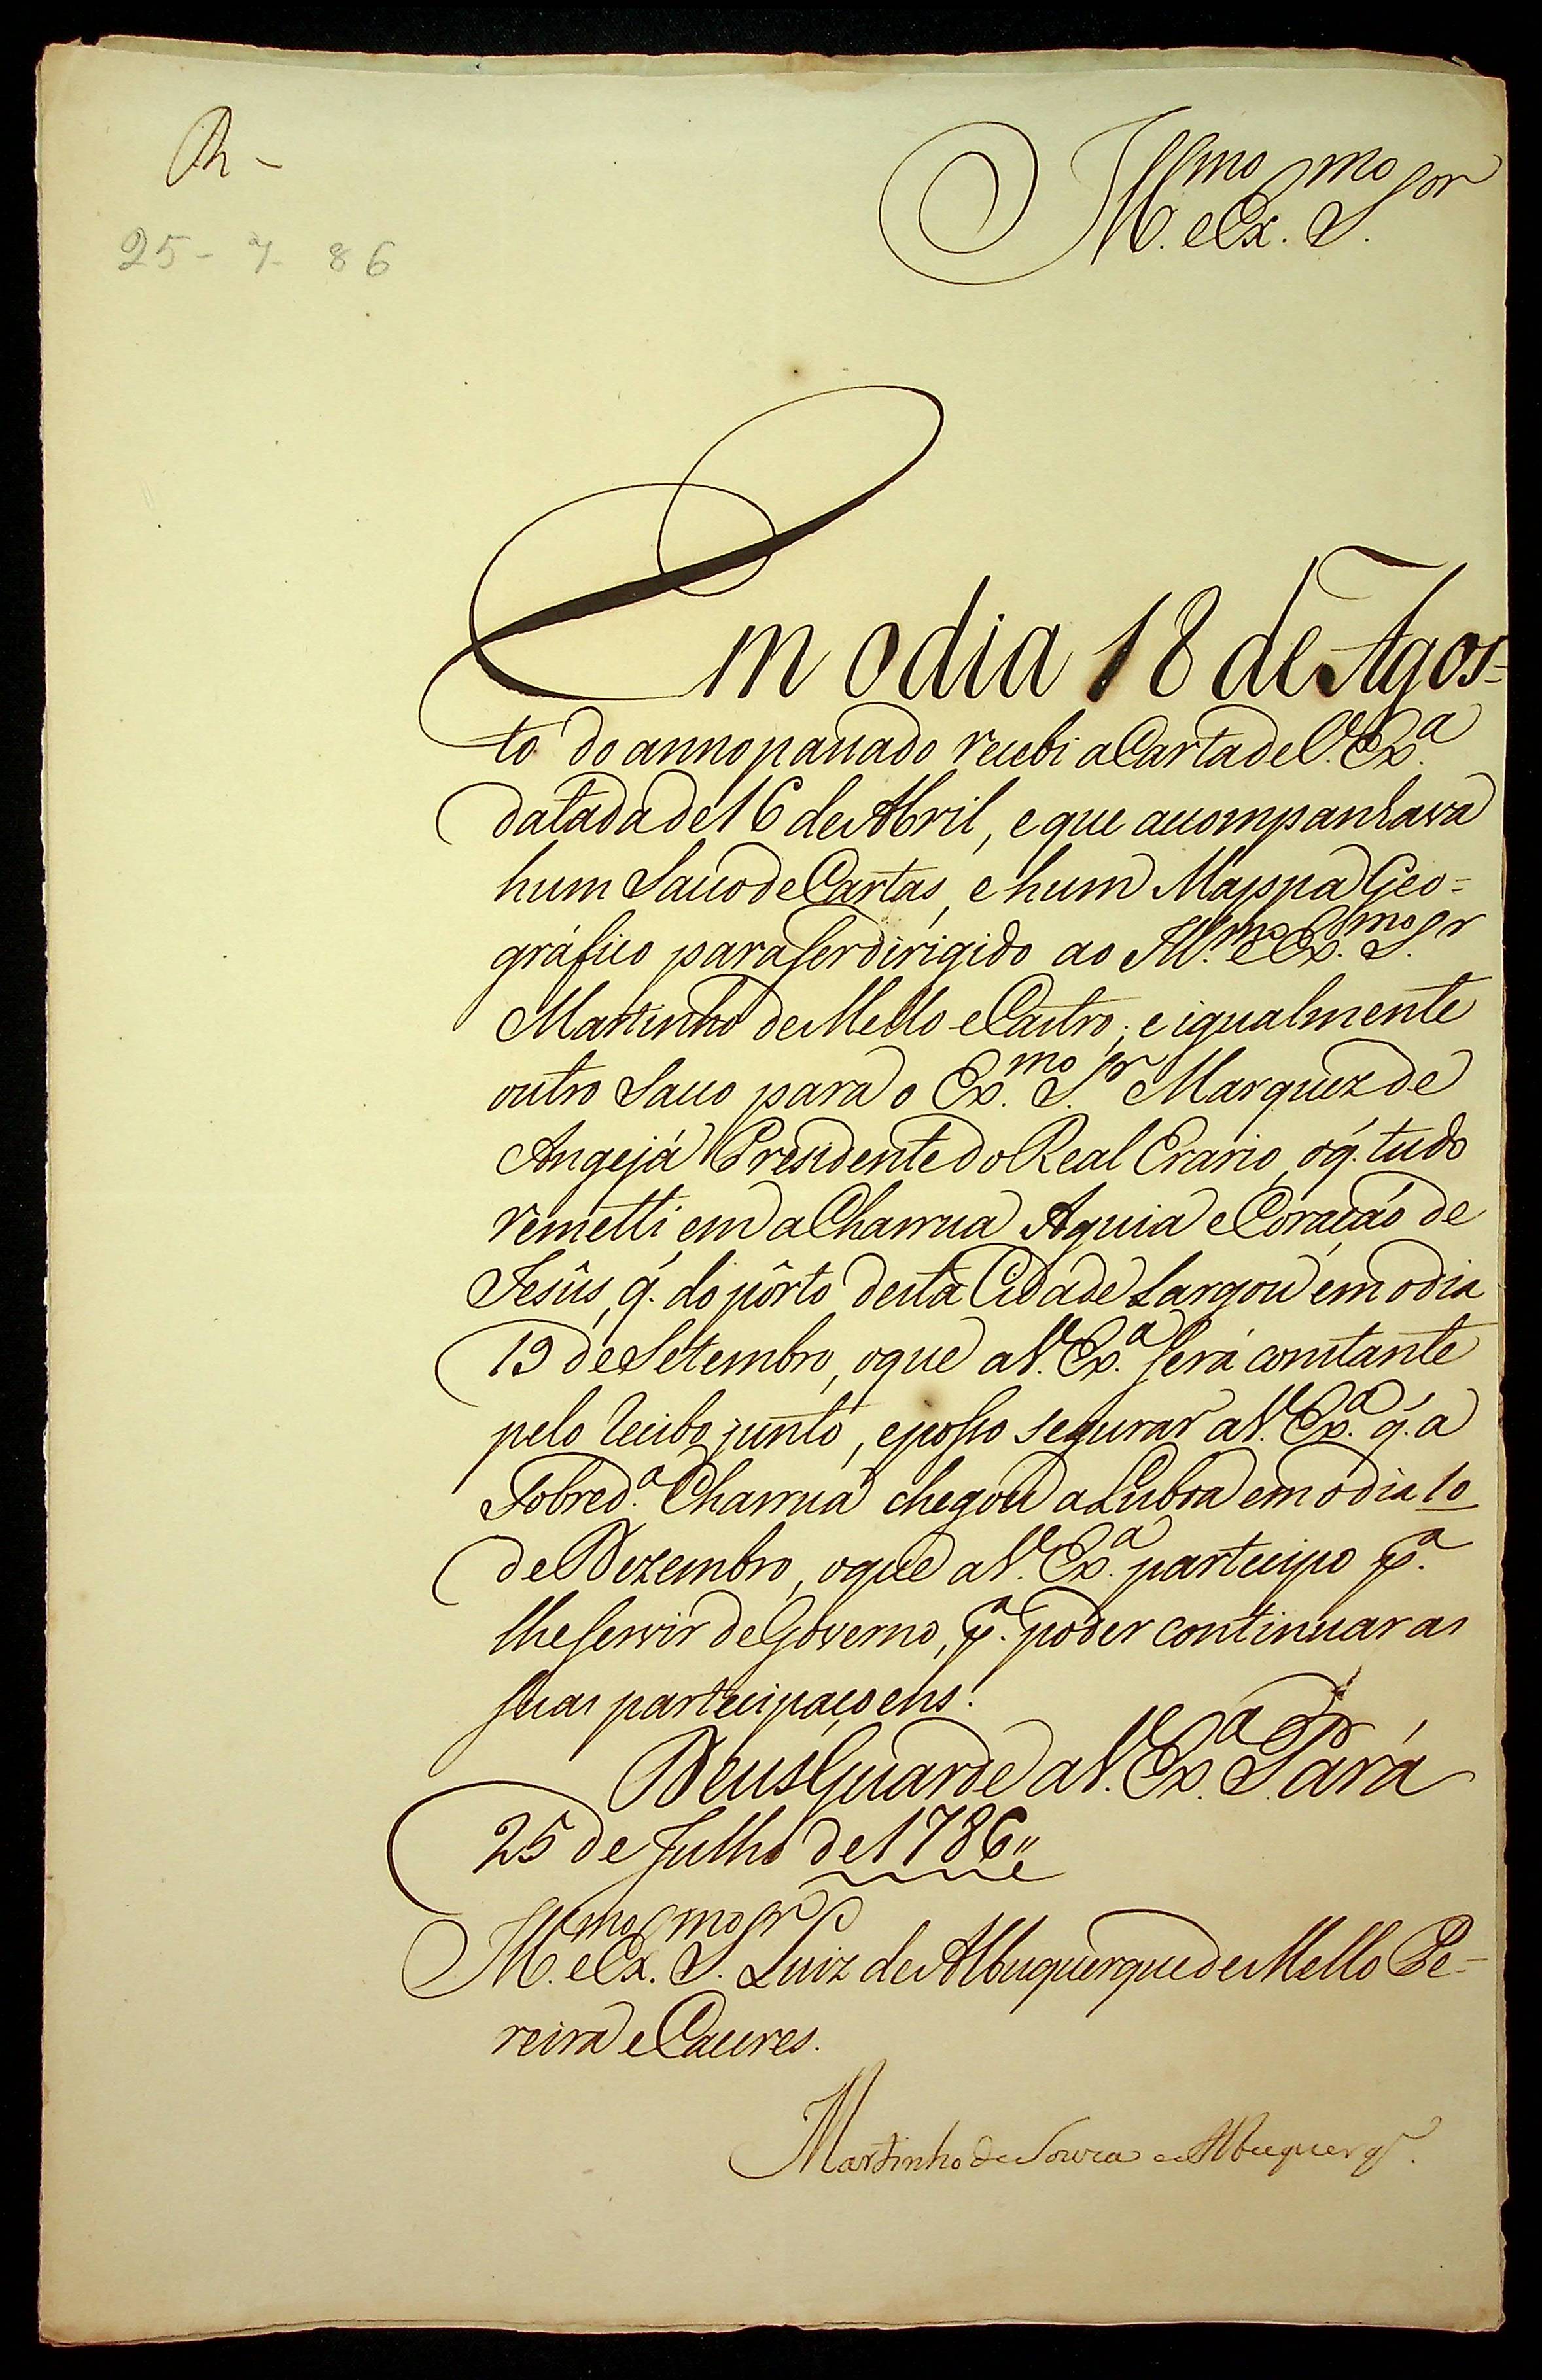 R -
Ill.mo e Ex.mo S.or
25 - 7 - 86
Em o dia 18 de Agos-
to do anno passado recebi a Carta de V. Ex.a
datada de 16 de Abril, e que acompanhava
hum Sacco de Cartas, e hum Mappa Geo=
gráfico para ser dirigido ao Ill.mo e Ex.mo S.r
Martinho de Mello e Castro; e igualmente
outro Sacco para o Ex.mo S.or Marquez de
Angejá Presidente do Real Erario, o q̃. tudo
remetti em a Charrua Aguia e Coração de
Jesûs, q̃. do pôrto desta Cidade Largou em o dia
19 de Setembro, o que a V. Ex.a será constante
pelo recibo junto, e posso segurar a V. Ex.a q̃. a
Sobred.a Charrua chegou a Lisboa em o dia 10
de Dezembro, o que a V. Ex.a participo p.a
lhe servir de Governo, p.a poder continuar as
suas participaçoens.
Deus Guarde a V. Ex.a Pará
25 de Julho de 1786"
Ill.mo e Ex.mo S.or Luiz de Albuquerque de Mello Pe-
reira e Caceres.
Martinho de Souza e Albuquerq.e